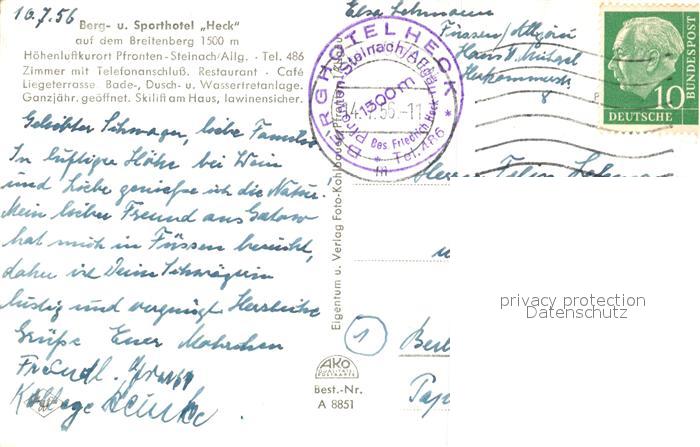 10.7.56
Berg- u. Sporthotel „Heck"
auf dem Breitenberg 1500 m
Höhenluftkurort Pfronten-Steinach/Allg. - Tel. 486
Zimmer mit Telefonanschluß. Restaurant - Café
Liegeterrasse Bade-, Dusch- u. Wassertretanlage.
Ganzjähr. geöffnet. Skilift am Haus, lawinensicher.
Geliebter Schwager, liebe Familie
In luftiger Höhe bei Wein
und Liebe genieße ich die Natur.
Mein lieber Freund aus Gatow
hat mich in Füssen besucht,
daher ist Deine Schwägerin
lustig und vergnügt. Herzliche
Grüße Euer
Freundl.
Kollege
Elsa Lehmann
Füssen/Allgäu
Hans
8
BERGHOTEL HECK
Pfronten-Steinach/Allgäu
1500 m
Bes. Friedrich Heck
Tel. 486
DEUTSCHE
BUNDESPOST
10
Herrn Felix
Eigentum u. Verlag Foto-Kohlbauer, Pfronten
1
Berl
AKO
QUALITÄTS
POSTKARTE
Best.-Nr.
A 8851
privacy protection
Datenschutz